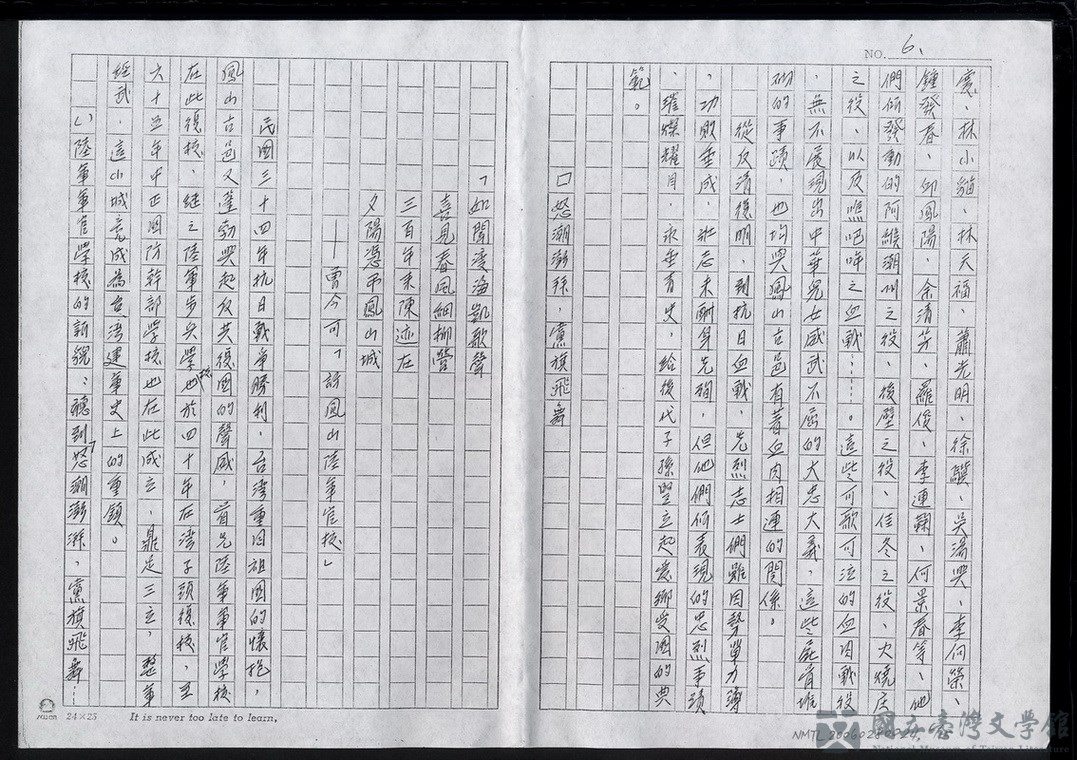 NO. 6.
憲、林小貓、林天福、蕭光明、徐驤、吳湯興、李向榮、
鍾發春、邱鳳陽、余清芳、羅俊、李連鞠、何景春等、他
們所發動的阿緱潮州之役、後壁之役、佳冬之役、火燒庄
之役、以及噍吧哖之血戰……。這些可歌可泣的血肉戰役
，無不展現出中華兒女威武不屈的大忠大義，這些屍骨堆
砌的事蹟，也均與鳳山古邑有著血肉相連的關係。
從反清復明，到抗日血戰，先烈志士們雖因勢單力薄
，功敗垂成，壯志未酬身先殉，但他們所表現的忠烈事蹟
，璀燦耀目，永垂青史，給後代子孫豎立起愛鄉愛國的典
範。
□怒潮澎湃，黨旗飛舞
「如聞渡海凱歌聲
喜見春風細柳營
三百年來陳迹在
夕陽憑弔鳳山城
——曾今可「訪鳳山陸軍官校」
民國三十四年抗日戰爭勝利，台灣重回祖國的懷抱，
鳳山古邑又蓬勃興起反共復國的聲威，首先陸軍軍官學校
在此復校，繼之陸軍步兵學校也於四十年在灣子頭復校，至
六十五年中正國防幹部學校也在此成立，鼎足三立，整軍
經武，這小城竟成為台灣建軍史上的重鎮。
㈠陸軍軍官學校的新貌：聽到「怒潮澎湃，黨旗飛舞…
24×25
It is never too late to learn,
NMTL
國立臺灣文學館
National Museum of Taiwan Literature